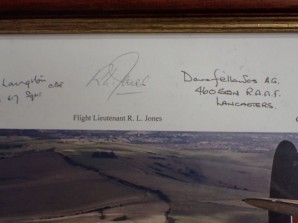 Langston CBE
R.L. Jones
Flight Lieutenant R. L. Jones
Dave Fellowes A.G.
460 SQN R.A.A.F.
LANCASTERS.